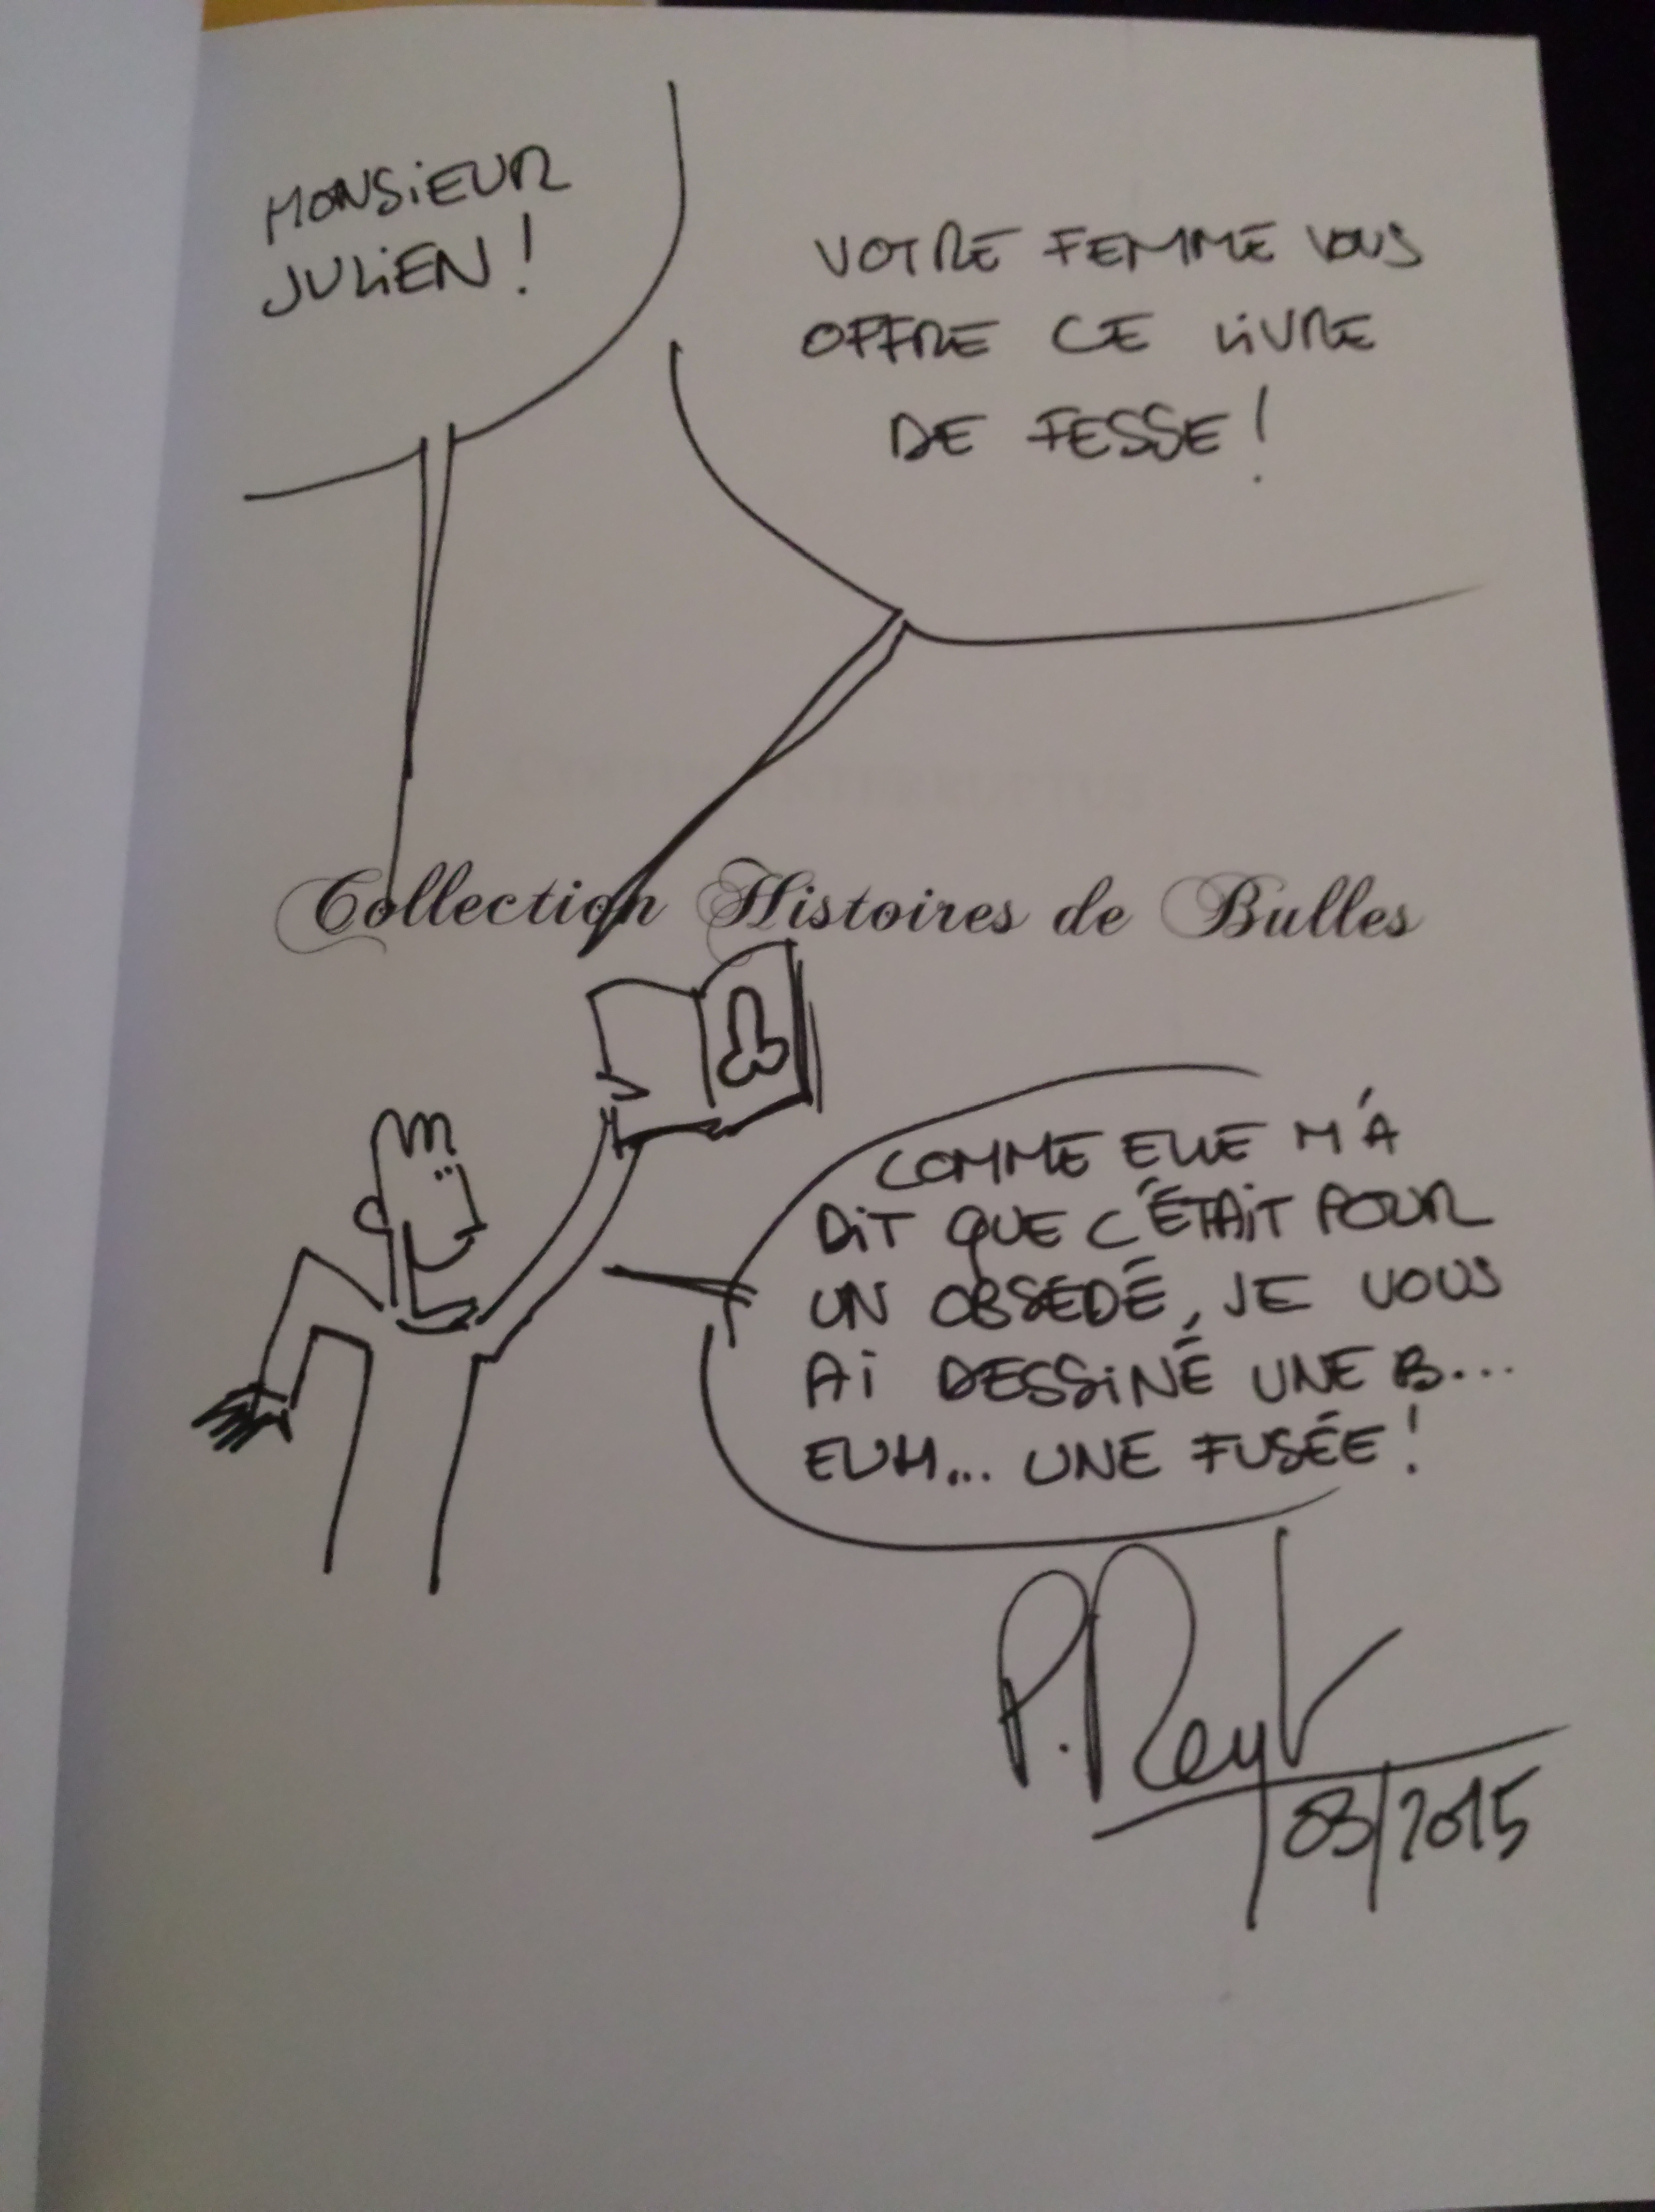 MONSIEUR
JULIEN !
VOTRE FEMME VOUS
OFFRE CE LIVRE
DE FESSE !
Collection Histoires de Bulles
COMME ELLE M'A
DIT QUE C'ÉTAIT POUR
UN OBSÉDÉ, JE VOUS
AI DESSINÉ UNE B...
EUH... UNE FUSÉE !
03/2015